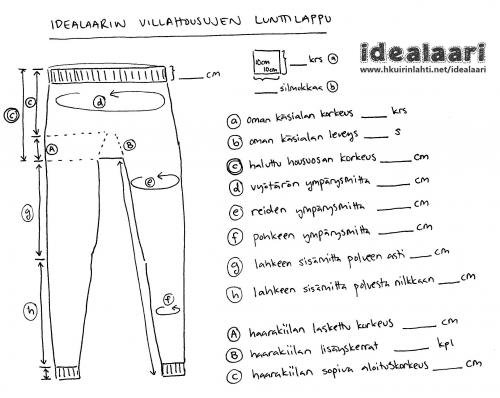 IDEALAARIN VILLAHOUSUJEN LUNTTILAPPU
idealaari
www.hkuirinlahti.net/idealaari
10cm
10cm
___ krs (a)
___ silmukkaa (b)
___ cm
(c)
(c)
(d)
(A)
(B)
(e)
(g)
(f)
(h)
(a) oman käsialan korkeus ___ krs
(b) oman käsialan leveys ___ s
(c) haluttu housuosan korkeus ___ cm
(d) vyötärön ympärysmitta ___ cm
(e) reiden ympärysmitta ___ cm
(f) pohkeen ympärysmitta ___ cm
(g) lahkeen sisämitta polveen asti ___ cm
(h) lahkeen sisämitta polvesta nilkkaan ___ cm
(A) haarakiilan laskettu korkeus ___ cm
(B) haarakiilan lisäyskerrat ___ kpl
(C) haarakiilan sopiva aloituskorkeus ___ cm